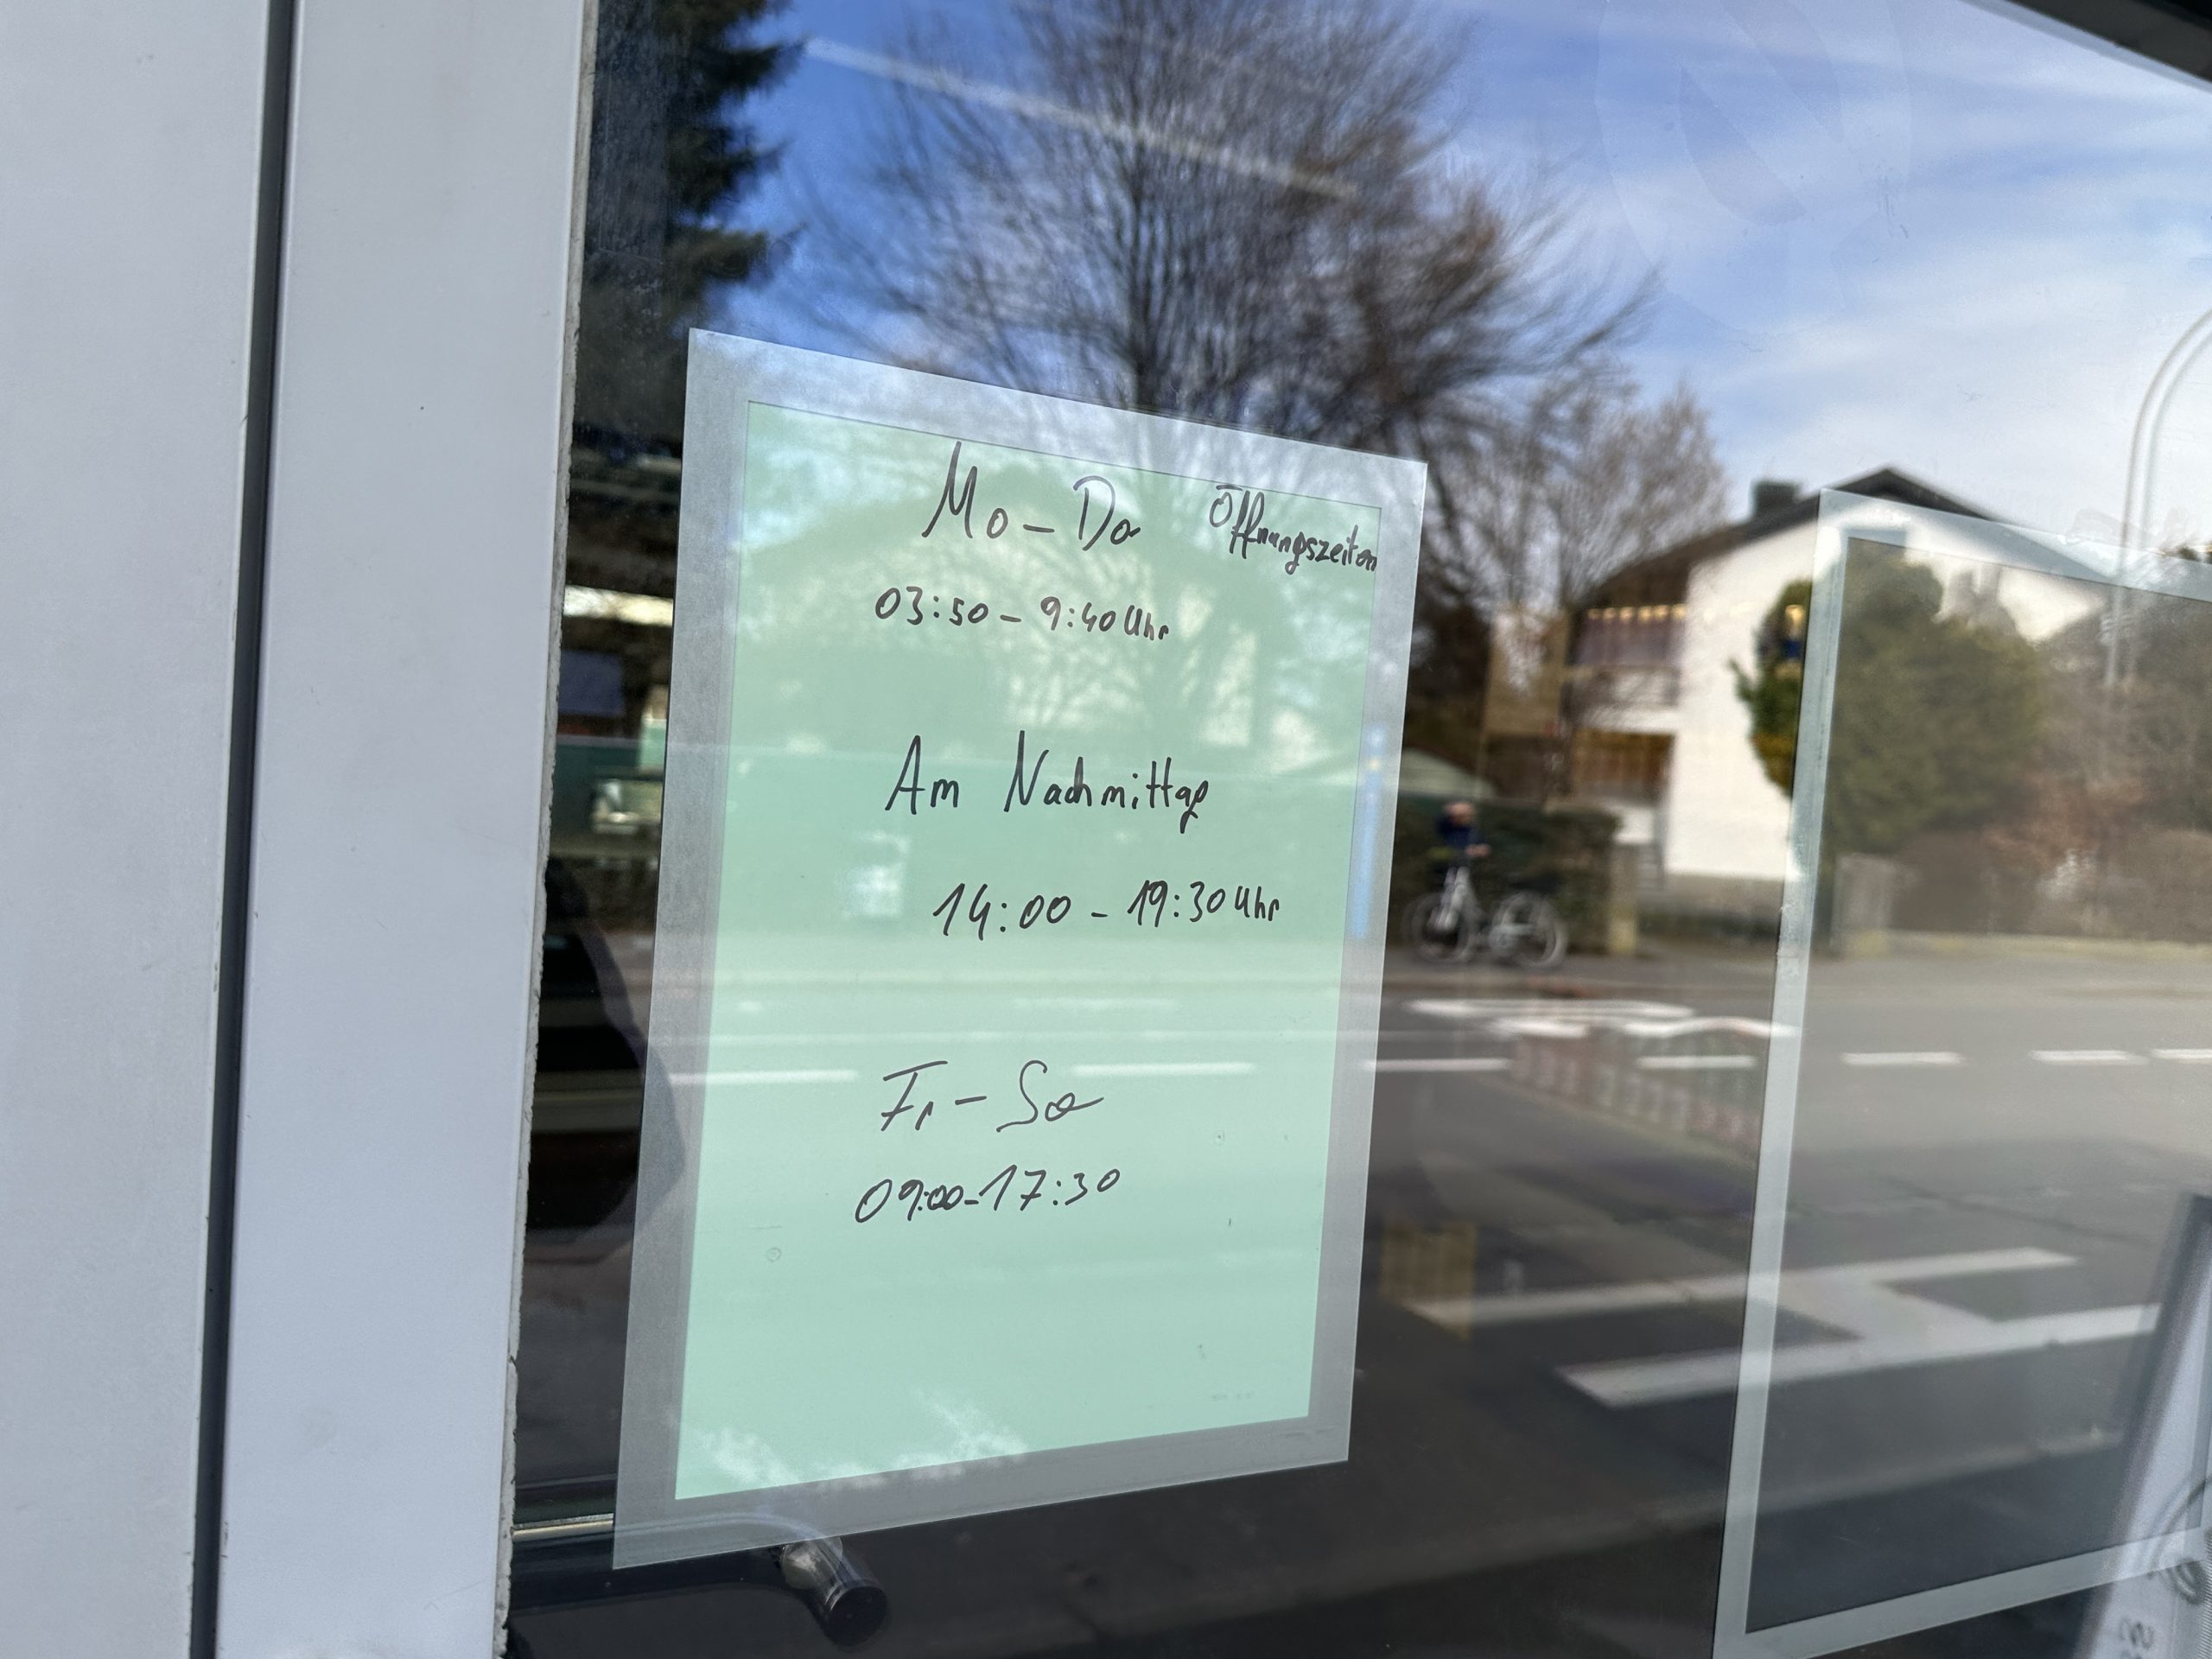 Mo - Do Öffnungszeiten
03:50 - 9:40 Uhr
Am Nachmittag
14:00 - 19:30 Uhr
Fr - Sa
09:00-17:30